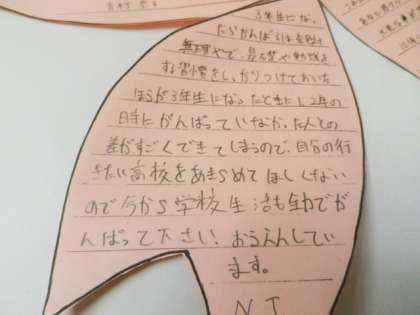 3年生になっ
たらがんばるは絶対
無理やで、基礎や勉強す
る習慣をしっかりつけておいた
ほうが3年生になったときに1、2年の
時にがんばっていなかった人との
差がすごくできてしまうので、自分の行
きたい高校をあきらめてほしくない
ので今から学校生活も全力でが
んばって下さい! おうえんしてい
ます。
N.T.